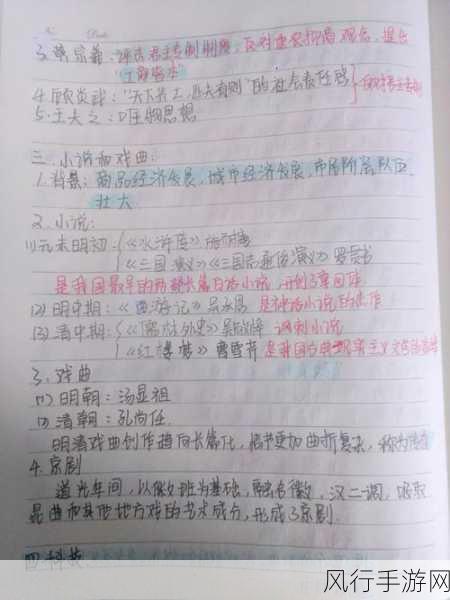 Date
3. 黄宗羲：评击君主专制制度，反对重农抑商观念，提出
"工商皆本"
4. 顾炎武："天下兴亡，匹夫有则"的社会责任感
5. 王夫之：唯物思想
反对君主专制
三. 小说和戏曲：
1. 背景：商品经济发展，城市经济发展，市民阶层队伍
壮大
2. 小说：
(1) 元末明初：《水浒传》施耐庵
《三国演义》《三国志通俗演义》罗贯中
是我国最早的两部长篇白话小说，开创了章回体
(2) 明中期：《西游记》吴承恩 是神话小说的佳作
(3) 清中期：《儒林外史》吴敬梓 讽刺小说
《红楼梦》曹雪芹 是我国古典现实主义文学的高峰
3. 戏曲
(1) 明朝：汤显祖
(2) 清朝：孔尚任
明清戏曲创作趋向长篇化，情节更加曲折复杂，称为传奇
4. 京剧
道光年间，以徽班为基础，融合徽、汉二调，吸取
昆曲和其他地方戏的艺术成分，形成了京剧.
四 科技
风行手游网